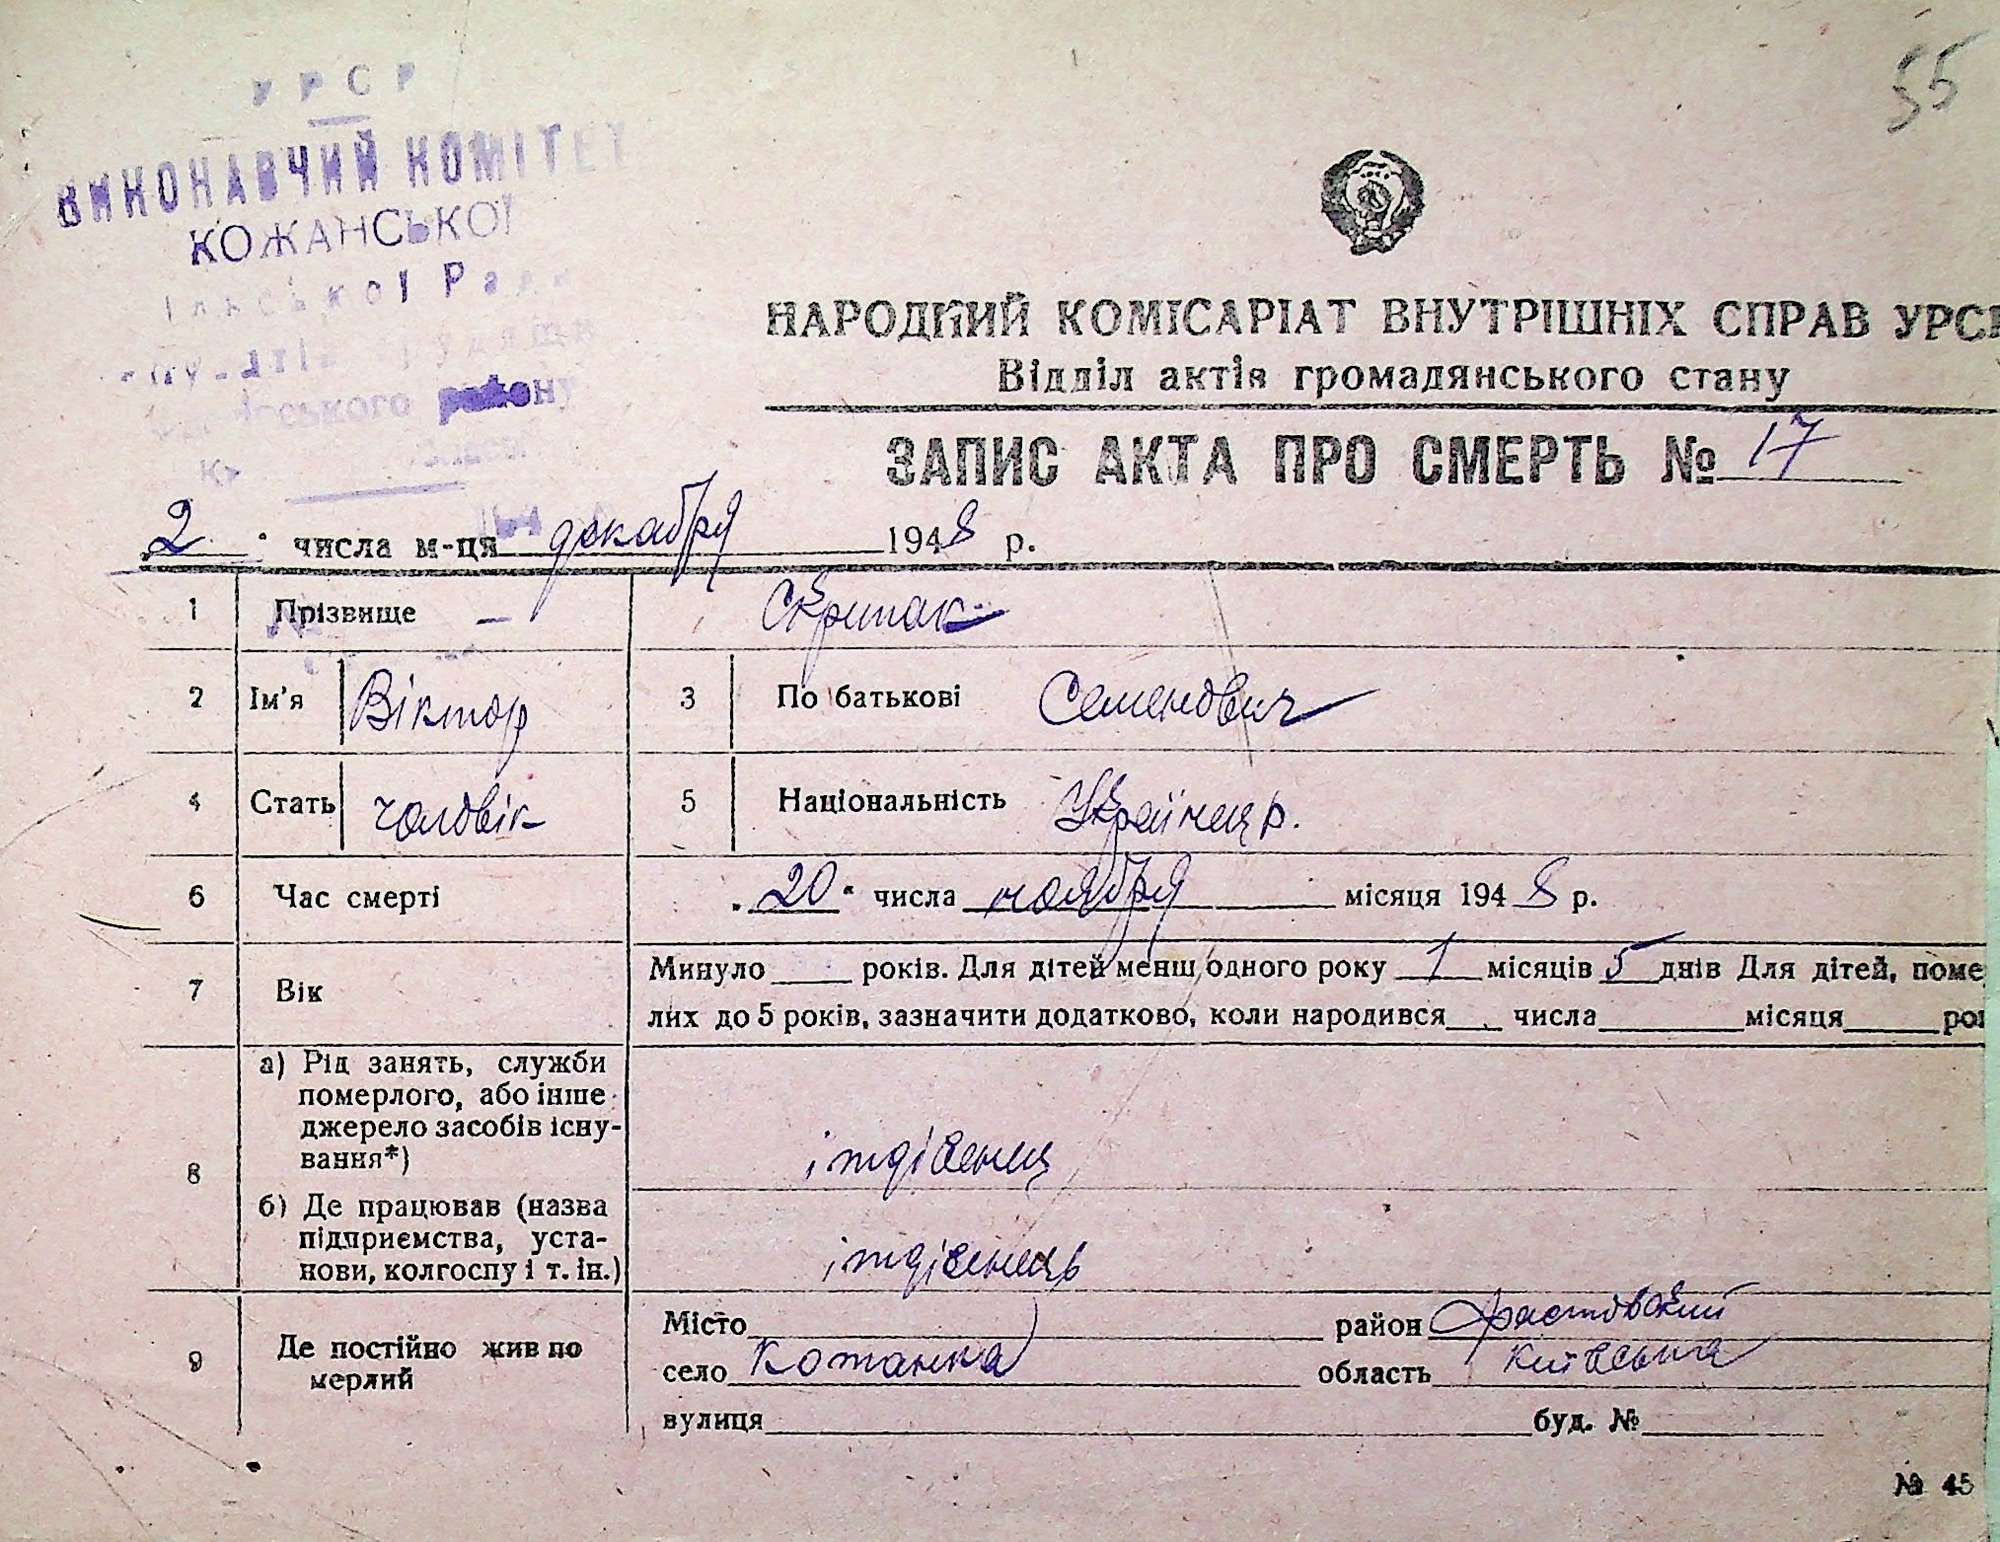 55
УРСР
ВИКОНАВЧИЙ КОМІТЕТ
КОЖАНСЬКОЇ
ільської Ради
району
НАРОДНИЙ КОМІСАРІАТ ВНУТРІШНІХ СПРАВ УРСР
Відділ актів громадянського стану
ЗАПИС АКТА ПРО СМЕРТЬ № 17
2 числа м-ця декабря 1948 р.
1 Прізвище — Скрипак
2 Ім'я Віктор 3 По батькові Семенович
4 Стать чоловік 5 Національність Українець.
6 Час смерті „20" числа ноября місяця 1948 р.
7 Вік Минуло ___ років. Для дітей менш одного року 1 місяців 5 днів Для дітей, поме
лих до 5 років, зазначити додатково, коли народився___ числа___ місяця___ рок
8 а) Рід занять, служби
померлого, або інше
джерело засобів існу-
вання*)
іждівенец
б) Де працював (назва
підприємства, уста-
нови, колгоспу і т. ін.)
іждівенець
9 Де постійно жив по
мерлий
Місто___ район Фастовский
село Кожанка область Київська
вулиця___ буд. №___
№ 45